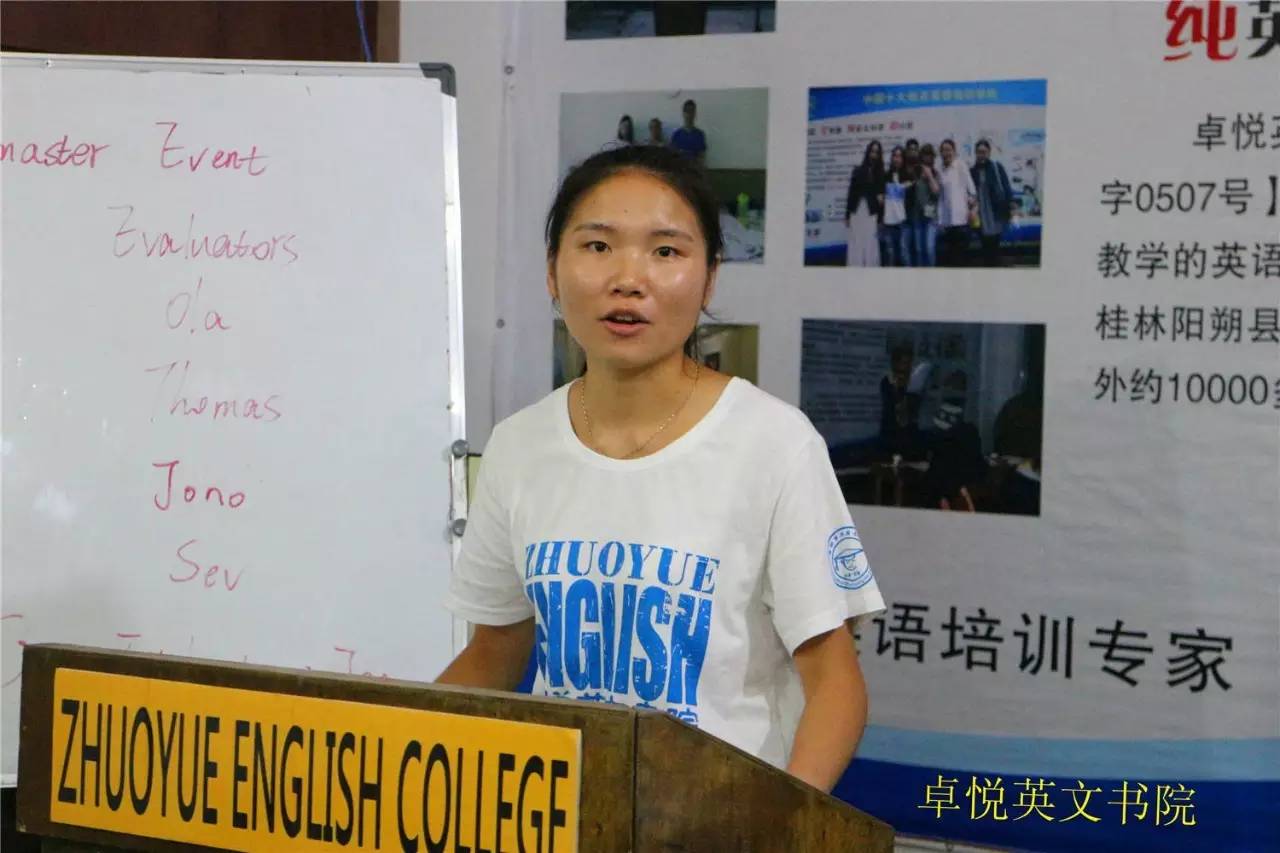 master Event
Evaluators
Ola
Thomas
Jono
Sev
纯英
卓悦英
字0507号】
教学的英语
桂林阳朔县
外约10000多
语培训专家
ZHUOYUE
ENGLISH
ZHUOYUE ENGLISH COLLEGE
卓悦英文书院